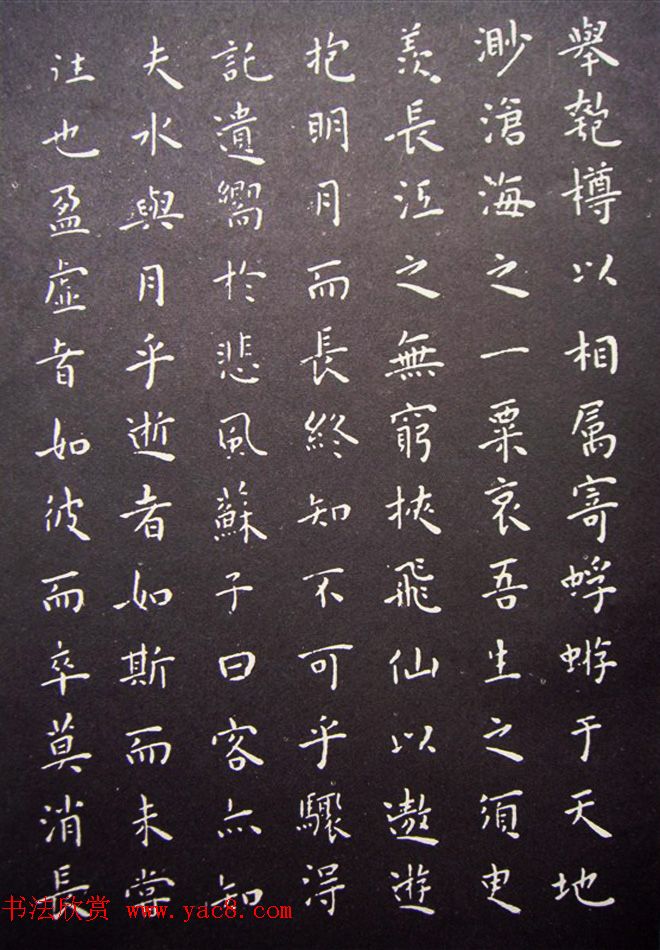 舉匏樽以相属寄蜉蝣于天地
渺滄海之一粟哀吾生之須臾
羨長江之無窮挾飛仙以遨遊
抱明月而長終知不可乎驟得
託遺響於悲風蘇子曰客亦知
夫水與月乎逝者如斯而未嘗
往也盈虚者如彼而卒莫消長
书法欣赏 www.yac8.com